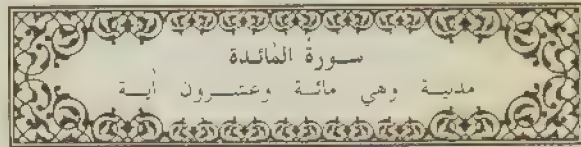 سورة المائدة
مدنية وهي مائة وعشرون أية